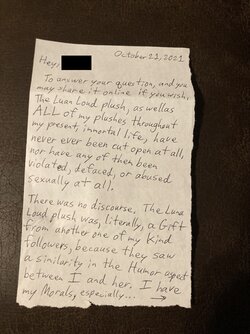 October 21, 2021
Hey,
To answer your question, and you
may share it online if you wish,
The Luan Loud plush, as well as
ALL of my plushes throughout
my present, immortal life, have
never ever been cut open at all,
nor have any of them been
violated, defaced, or abused
sexually at all.
There was no discourse. The Luna
Loud plush was, literally, a Gift
from another one of my kind
followers, because they saw
a similarity in the Humor aspect
between I and her. I have
my Morals, especially... →